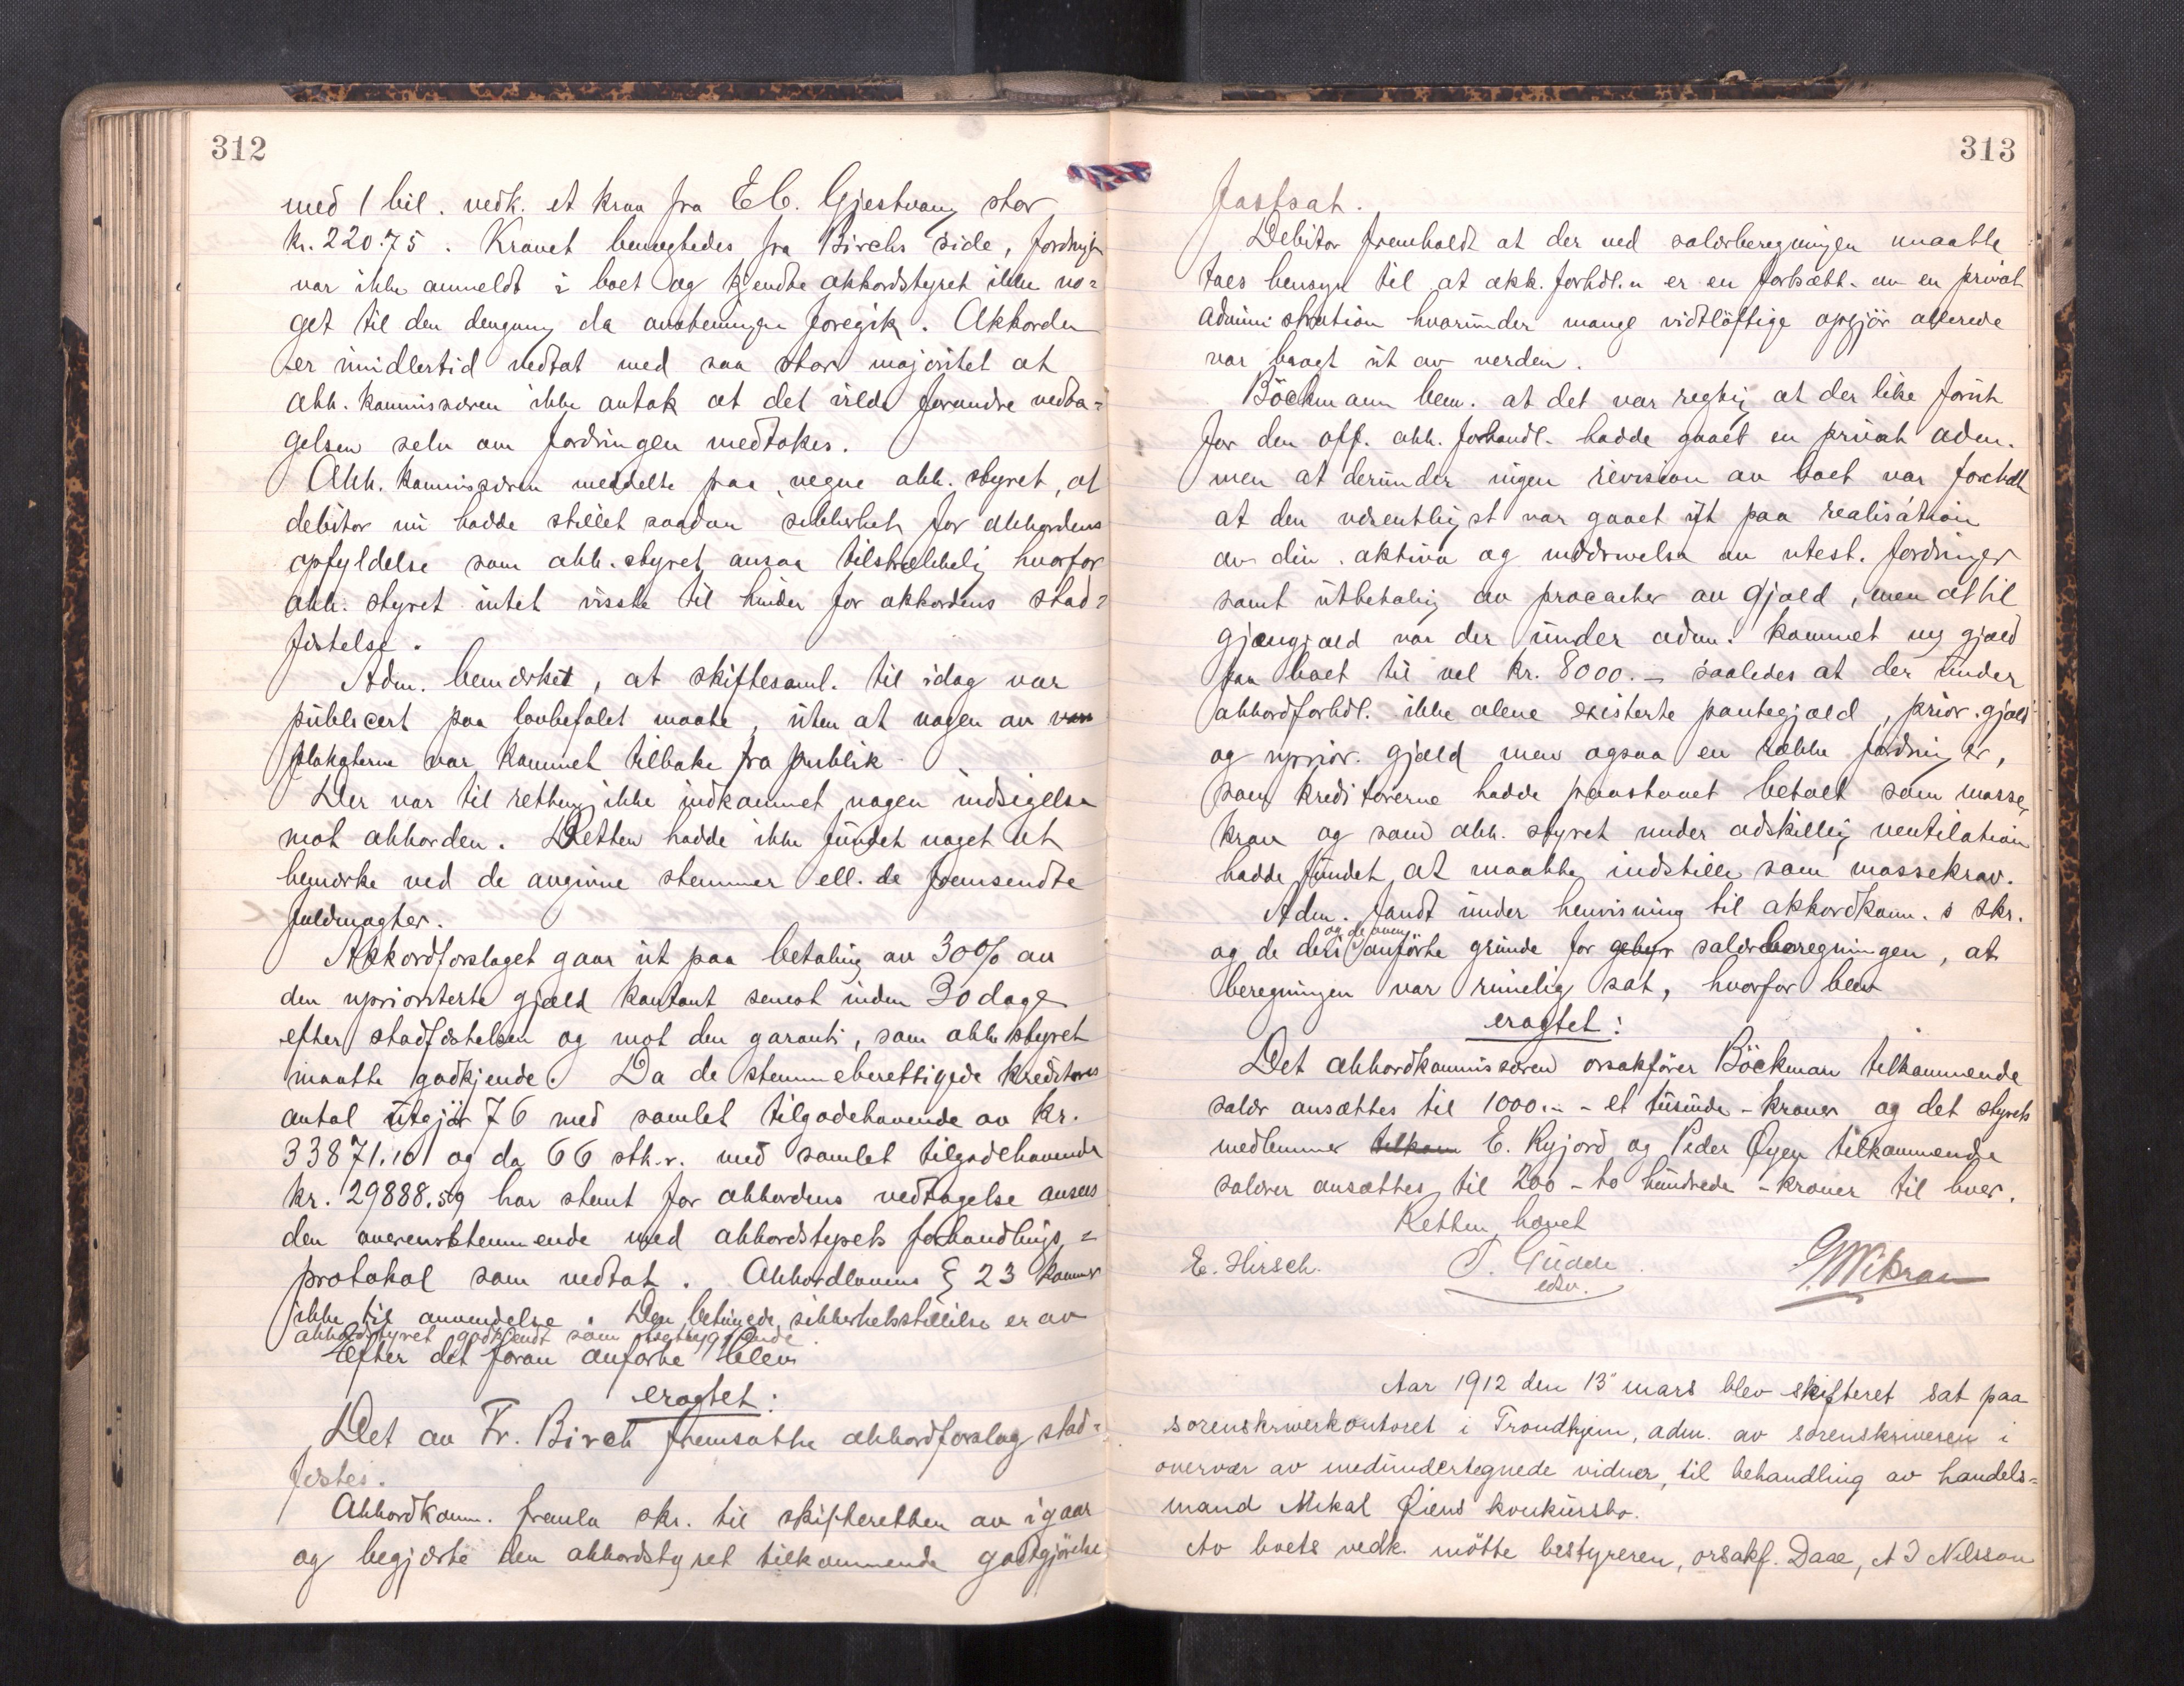 312
med 1 bil. vedk. et krav fra E C. Gjestvang stor
kr. 220.75. Kravet benegtedes fra Birchs side, fordringen
var ikke anmeldt i boet og kjendte akkordstyret ikke no=
get til den dengang da avstemningen foregik. Akkorden
er imidlertid vedtat med saa stor majoritet at
akk. kommissæren ikke antok at det vilde forandre vedta=
gelsen selv om fordringen medtokes.
Akk. kommissæren meddelte paa vegne akk. styret, at
debitor nu hadde stillet saadan sikkerhet for akkordens
opfyldelse som akk. styret ansaa tilstrækkelig hvorfor
akk. styret intet visste til hinder for akkordens stad=
fæstelse.
Adm. bemærket, at skiftesaml. til idag var
publicert paa lovbefalet maate, uten at nogen av
plakaterne var kommet tilbake fra publik
Der var til retten ikke indkommet nogen indsigelse
mot akkorden. Retten hadde ikke fundet noget at
bemærke ved de avgivne stemmer ell. de fremsendte
fuldmagter.
Akkordforslaget gaar ut paa betaling av 30% av
den uprioriterte gjæld kontant senest inden 30 dage
efter stadfæstelsen og mot den garanti, som akk styret
maatte godkjende. Da de stemmeberettigede kreditorers
antal utgjør 76 med samlet tilgodehavende av kr.
33871.161 og da 66 stk. med samlet tilgodehavende
kr. 29888.59 har stemt for akkordens vedtagelse ansees
den overensstemmende med akkordstyrets forhandlings=
protokol som vedtat. Akkordlovens § 23 kommer
ikke til anvendelse. Den betingede sikkerhetsstillelse er av
akkordstyret godkjendt som betryggende
Efter det foran anførte blev
eragtet:
Det av Fr. Birch fremsatte akkordforslag stad=
fæstes.
Akkordkom. fremla skr. til skifteretten av igaar
og begjærte den akkordstyret tilkommende godtgjørelse
313
fastsat.
Debitor fremholdt at der ved salærberegningen maatte
taes hensyn til at akk. forhdl.n er en fortsætt. av en privat
administration hvorunder mange vidtløftige opgjør allerede
var bragt ut av verden.
Böckmann bem. at det var regtig at der like forut
for den off. akk. forhandl. hadde gaaet en privat adm.
men at derunder ingen revision av boet var foretatt
at den væsentligst var gaaet ut paa realisation
av div. aktiva og inddrivelse av utest. fordringer
samt utbetaling av procenter av gjæld, men at til
gjængjæld var der under adm. kommet ny gjæld
paa boet til vel kr. 8000.- saaledes at der under
akkordforhdl. ikke alene existerte pantegjæld, prior. gjæld
og uprior. gjæld men ogsaa en række fordringer,
som kreditorerne hadde paastaaet betalt som masse
krav og som akk. styret under adskillig ventilation
hadde fundet at maatte indstille som massekrav.
Adm. fandt under henvisning til akkordkom. s skr.
og de deri og de oven anførte grunde for gebyr salærberegningen, at
beregningen var rimelig sat, hvorfor blev
eragtet:
Det akkordkommissæren orsakfører Böckman tilkommende
salær ansættes til 1000.- - et tusinde - kroner og det styrets
medlemmer tilkom E. Ryjord og Peder Øyen tilkommende
salærer ansættes til 200 - to hundrede - kroner til hver.
Retten hævet
E. Hirsch.
edsv.
Aar 1912 den 13" mars blev skifteret sat paa
sorenskriverkontoret i Trondhjem, adm. av sorenskriveren i
overvær av medundertegnede vidner, til behandling av handels=
mand Mikal Øiens konkursbo.
Av boets vedk. møtte bestyreren, orsakf. Daae, A J Nilsson